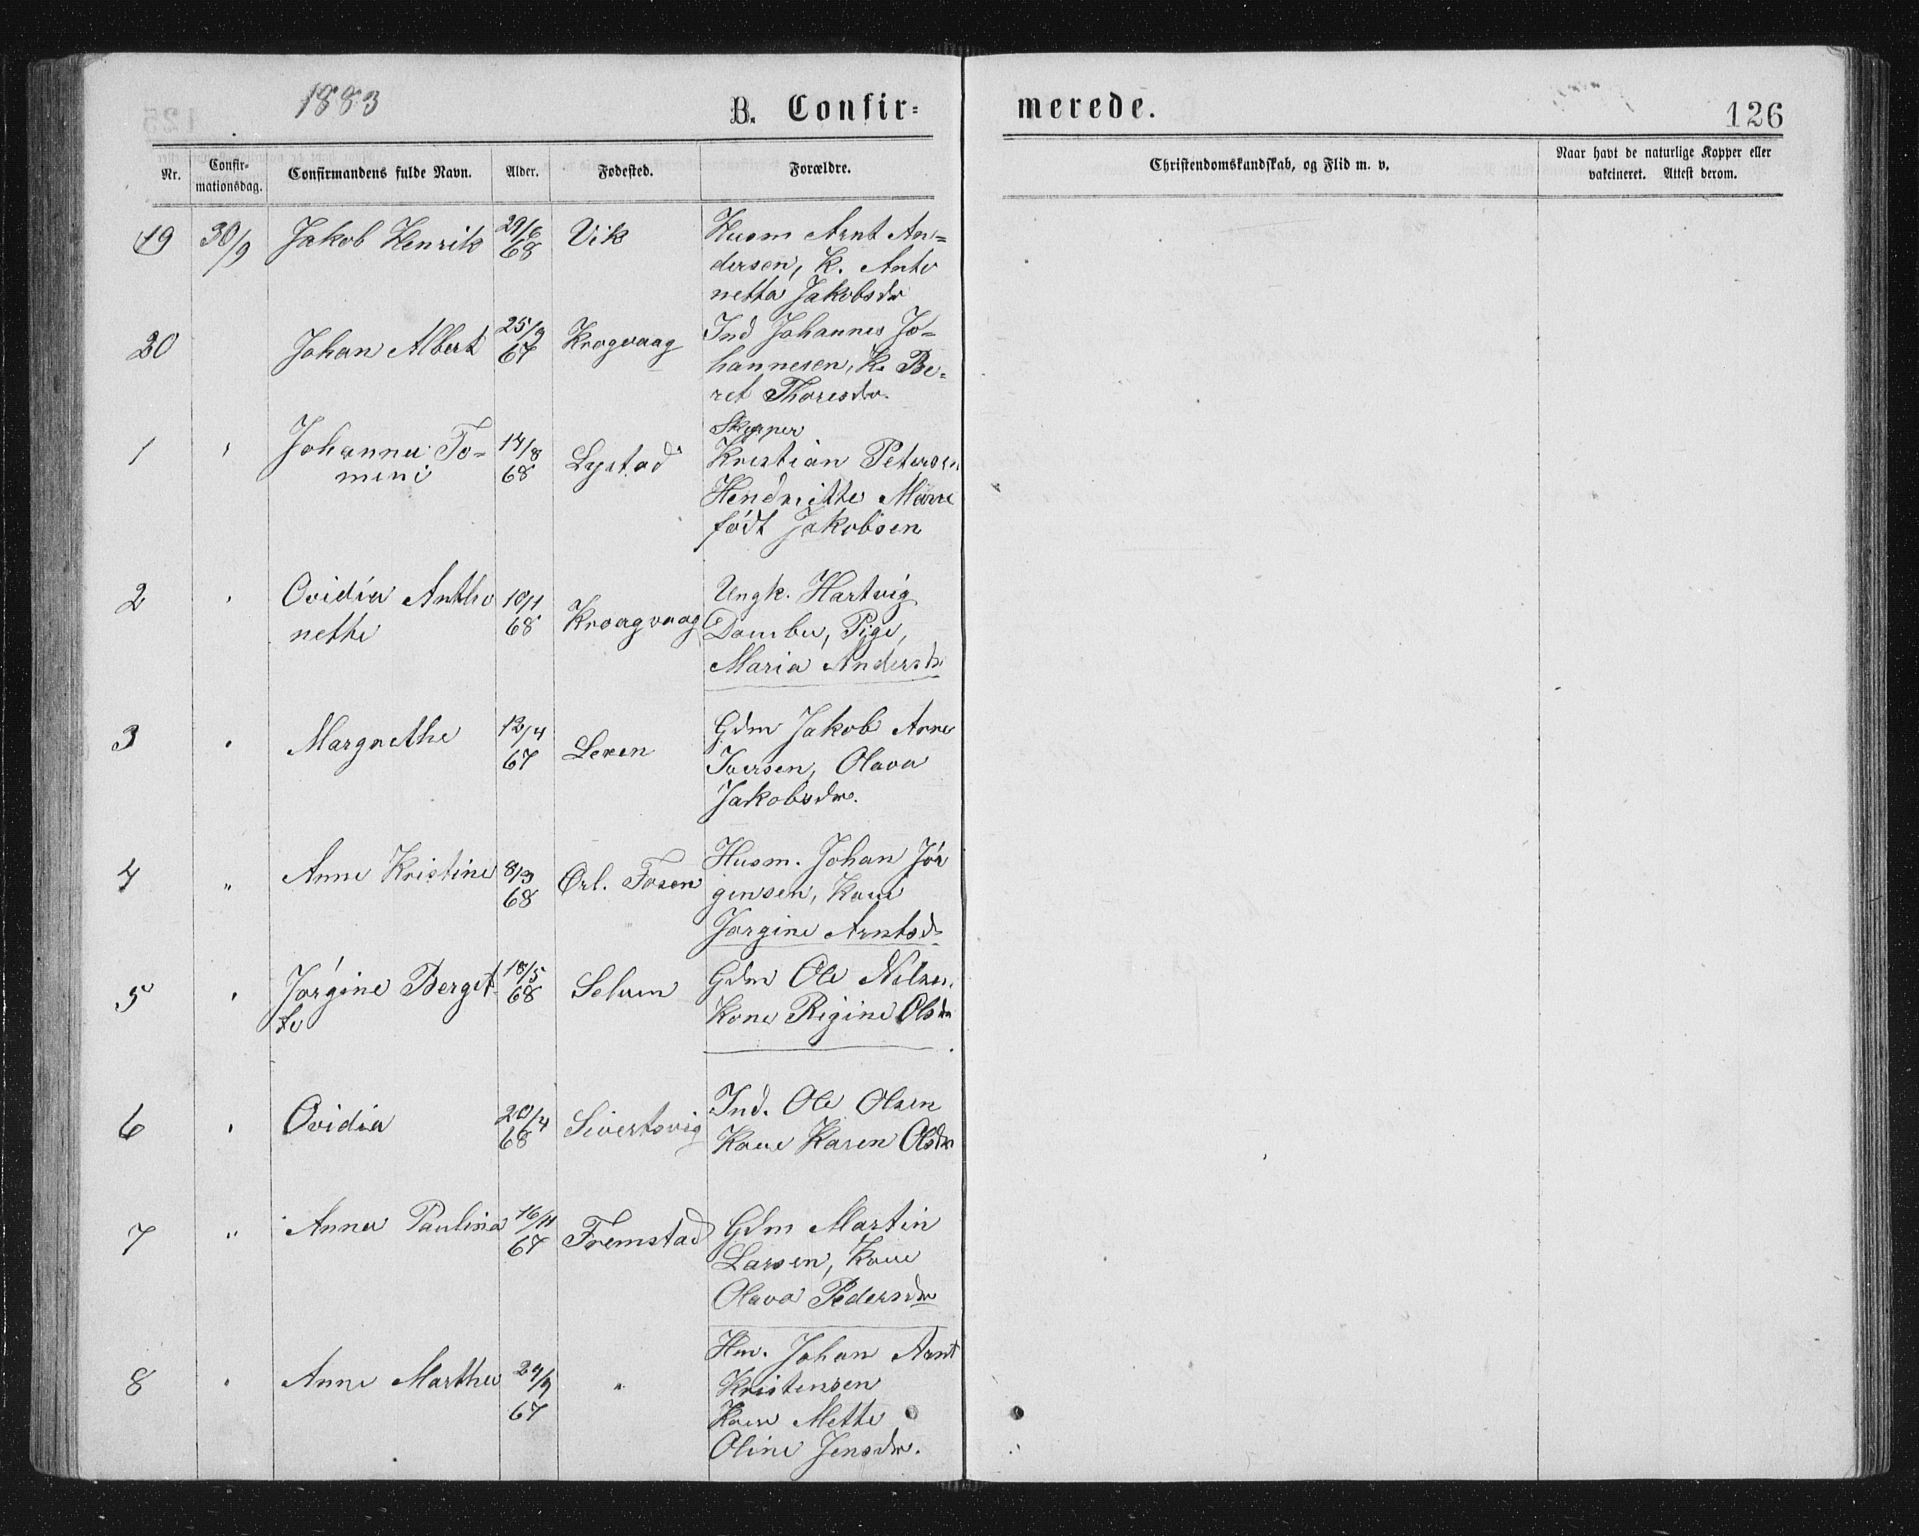 1883
B. Confir=
merede.
126
Nr.
Confir-
mationsdag.
Confirmandens fulde Navn.
Alder.
Fødested.
Forældre.
Christendomskundskab, og Flid m. v.
Naar havt de naturlige Kopper eller
vakcineret. Attest derom.
19 30/9 Jakob Henrik 29/6 68 Vik Husm Arnt An=
dersen, K. Anto
netta Jakobsdr
20 Johan Albert 25/9 67 Krogvaag Ind Johannes Jo=
hannesen, K. Be=
ret Thoresdr.
1 " Johanna To= 14/8 68 Lystad Skipper
mine
Kristian Petersen
Hendritte Marie
født Jakobsen
2 " Ovidia Antho 10/1 68 Kroagvaag Ungk. Hartvig
nette
Dambu, Pige,
Maria Andersdr
3 " Margrethe 12/4 67 Leren Gdm Jakob Arne
Iversen, Olava
Jakobsdr.
4 " Anne Kristine 8/3 68 Ørl. Fosen Husm. Johan Jør
gensen, Kone
Jørgine Arntsd
5 " Jørgine Berget 18/5 68 Selven Gdm Ole Nilsen
te
Kone Rigine Olsdr
6 " Ovidia 20/4 68 Sivertsvig Ind. Ole Olsen
Kone Karen Olsdr
7 " Anna Paulina 16/11 67 Fremstad Gdm Martin
Larsen, Kone
Olava Pedersdr
8 " Anne Martha 24/9 67 " Hm. Johan Arnt
Kristensen
Kone Mette
Oline Jensdr.